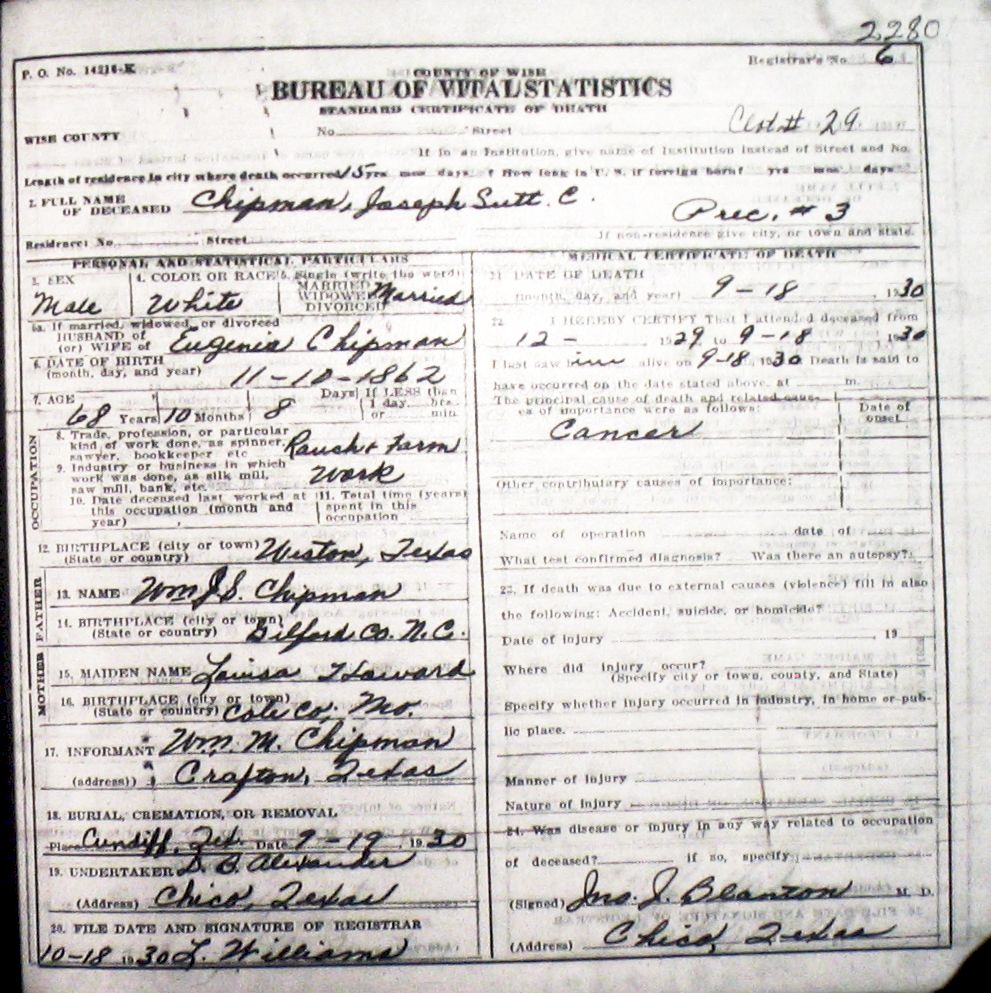 2280
P. O. No. 14216-K
Registrar's No. 6
COUNTY OF WISE
BUREAU OF VITAL STATISTICS
STANDARD CERTIFICATE OF DEATH
WISE COUNTY
No. Street
Clot# 29
If in an Institution, give name of Institution instead of Street and No.
Length of residence in city where death occurred 15 yrs mos days ? How long in U. S. if foreign born? yrs mos days
2. FULL NAME OF DECEASED Chipman, Joseph Sutt. C.
Prec. # 3
Residence: No. Street
If non-residence give city, or town and state.
PERSONAL AND STATISTICAL PARTICULARS
3. SEX Male
4. COLOR OR RACE White
5. Single (write the word) MARRIED WIDOWED DIVORCED Married
5a. If married, widowed, or divorced
HUSBAND of (or) WIFE of Eugenia Chipman
6. DATE OF BIRTH (month, day, and year) 11-10-1862
7. AGE 68 Years 10 Months 8 Days If LESS than 1 day, hrs. or min.
OCCUPATION
8. Trade, profession, or particular kind of work done, as spinner, sawyer, bookkeeper etc Ranch + Farm
9. Industry or business in which work was done, as silk mill, saw mill, bank, etc. Work
10. Date deceased last worked at this occupation (month and year)
11. Total time (years) spent in this occupation
12. BIRTHPLACE (city or town) (State or country) Weston, Texas
FATHER
13. NAME Wm J. S. Chipman
14. BIRTHPLACE (city or town) (State or country) Gilford Co. N.C.
MOTHER
15. MAIDEN NAME Louisa Howard
16. BIRTHPLACE (city or town) (State or country) Cole Co, Mo.
17. INFORMANT Wm. M. Chipman
(address) Crafton, Texas
18. BURIAL, CREMATION, OR REMOVAL
Place Cundiff, Tex. Date 9-19, 1930
19. UNDERTAKER D. B. Alexander
(Address) Chico, Texas
20. FILE DATE AND SIGNATURE OF REGISTRAR
10-18 1930 L. Williams
MEDICAL CERTIFICATE OF DEATH
21. DATE OF DEATH
(month, day, and year) 9-18, 1930
22. I HEREBY CERTIFY That I attended deceased from
12- 1929 to 9-18 1930
I last saw him alive on 9-18 1930 Death is said to
have occurred on the date stated above, at m.
The principal cause of death and related causes of importance were as follows:
Date of onset
Cancer
Other contributary causes of importance:
Name of operation date of
What test confirmed diagnosis? Was there an autopsy?
23. If death was due to external causes (violence) fill in also
the following: Accident, suicide, or homicide?
Date of injury , 19
Where did injury occur?
(Specify city or town, county, and State)
Specify whether injury occurred in industry, in home or public place.
Manner of injury
Nature of injury
24. Was disease or injury in any way related to occupation
of deceased? if so, specify
(Signed) Jno. J. Blanton M. D.
(Address) Chico, Texas